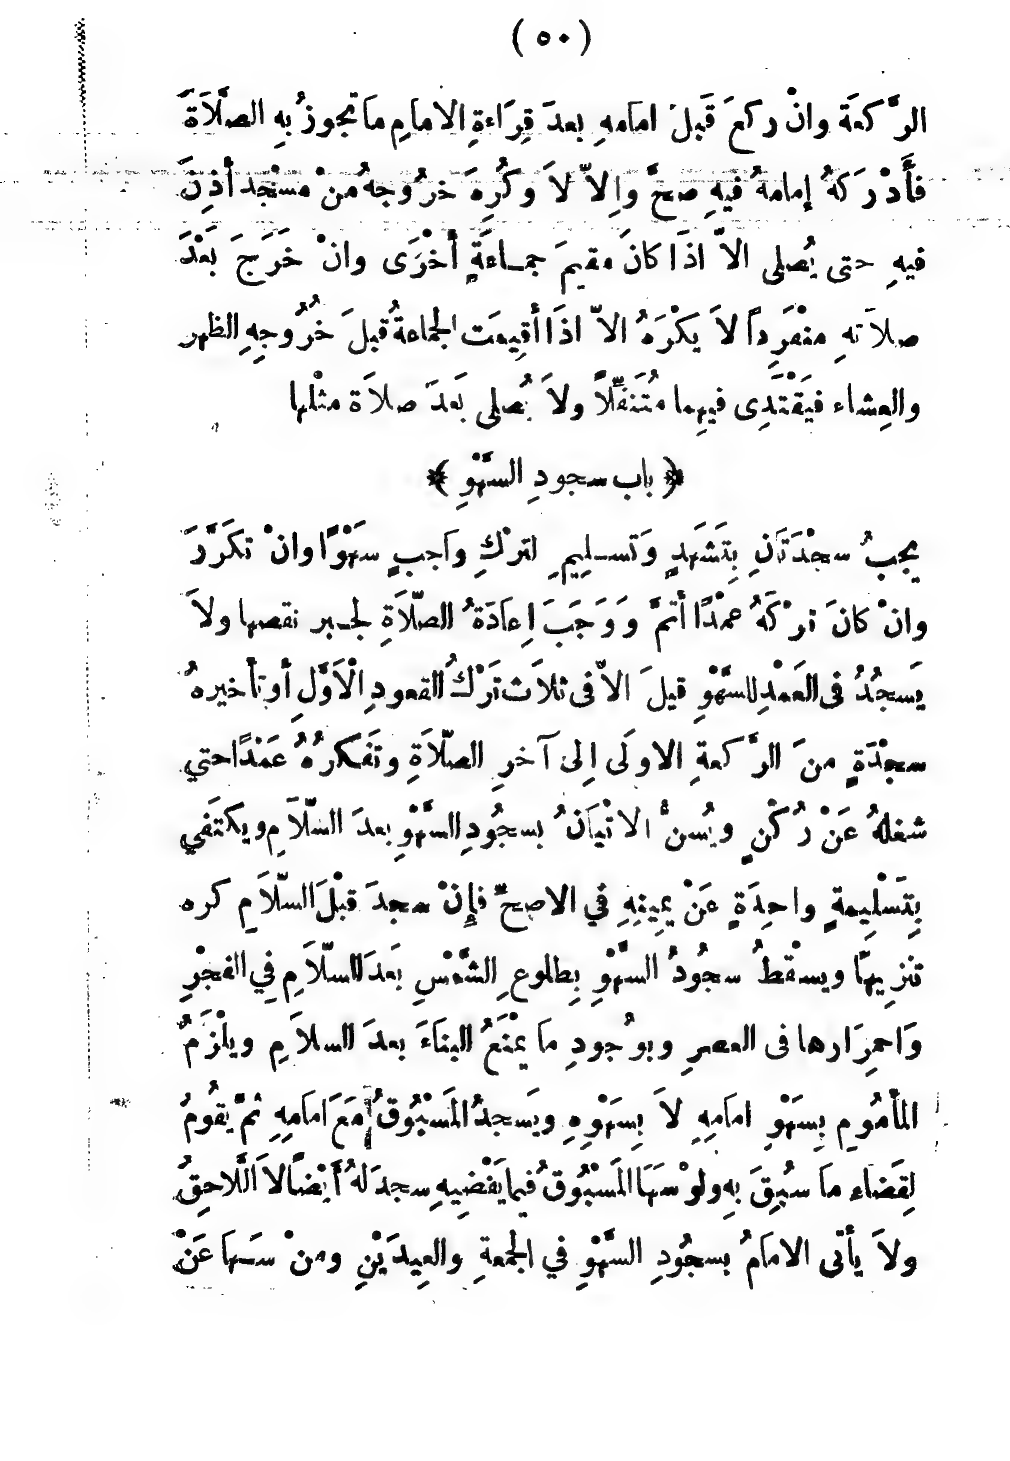 ( ٥٠ )
الرَّكعَة وانْ ركعَ قَبلَ امَامهِ بعدَ قِرَاءةِ الامامِ مَا تجوزُ بهِ الصَّلَاةَ
فأَدْرَكهُ إمامهُ فيهِ صحَّ وإلاّ لاَ وكُرِهَ خرُوجهُ منْ مسْجد أذنَ
فيهِ حتى يُصلى الاّ اذَا كانَ مقيمَ جمـاعَةٍ أخْرَى وانْ خَرَجَ بَعْدَ
صلاَتهِ منْفَرِداً لاَ يكْرَهُ الاّ اذَا أقيمَت الجماعةُ قبلَ خُرُوجِهِ الظهر
والعِشاء فيَقْتَدِى فيهِما مُتَنفِّلاً ولاَ يُصلى بَعدَ صلاَة مثْلها
﴿ باب سجودِ السَّهْوِ ﴾
يجبُ سجْدَتَانِ بِتَشَهدٍ وَتسـليمٍ لترْكِ واجبٍ سهْوًا وانْ تكرَّرَ
وانْ كانَ تركَهُ عمْدًا أثمَّ وَوَجَبَ إعادَةُ الصّلاَةِ لجـبر نقصها ولاَ
يَسجُدُ فى العَمْدِ للسَّهْوِ قيلَ الاّ فى ثلاَث تَرْكُ القعودِ الْاَوَّلِ أو تأخيرهُ
سجْدَةٍ منَ الرَّكعةِ الاولَى إلى آخرِ الصّلاَةِ وتَفكرُهُ عَمْدًا حتي
شغلهُ عَنْ رُكْنٍ ويُسنُّ الاتْيَانُ بسجُودِ السَّهْوِ بعدَ السّلاَمِ ويكتَفي
بِتَسْلِيمةٍ واحِدَةٍ عَنْ يمِينِهِ في الاصحِّ فإنْ سجدَ قبْلَ السّلاَمِ كره
تنْزِيهًا ويسقُطُ سجُودُ السَّهْوِ بِطلوعِ الشَّمْسِ بَعدَ السّلاَمِ فِي الفجْرِ
وَاحمِرَارها فى العصرِ وبوُجودِ مَا يمْنَعُ البنَاءَ بعدَ السلاَمِ ويلْزَمُ
المأمُومِ بِسَهْوِ امَامِهِ لاَ بِسَهْوِهِ ويَسجدُ المَسبُوقُ مَعَ امَامِهِ ثمَّ يقُومُ
لِقَضَاء مَا سبُقَ بهِ ولوْ سَهَا المَسْبُوقُ فيما يَقْضِيهِ سجدَ لهُ أيْضًا لاَ اللّاحِقُ
ولاَ يأتى الامَامُ بسجُودِ السَّهْوِ في الجمعةِ والعِيدَيْنِ ومنْ سَـها عَنْ